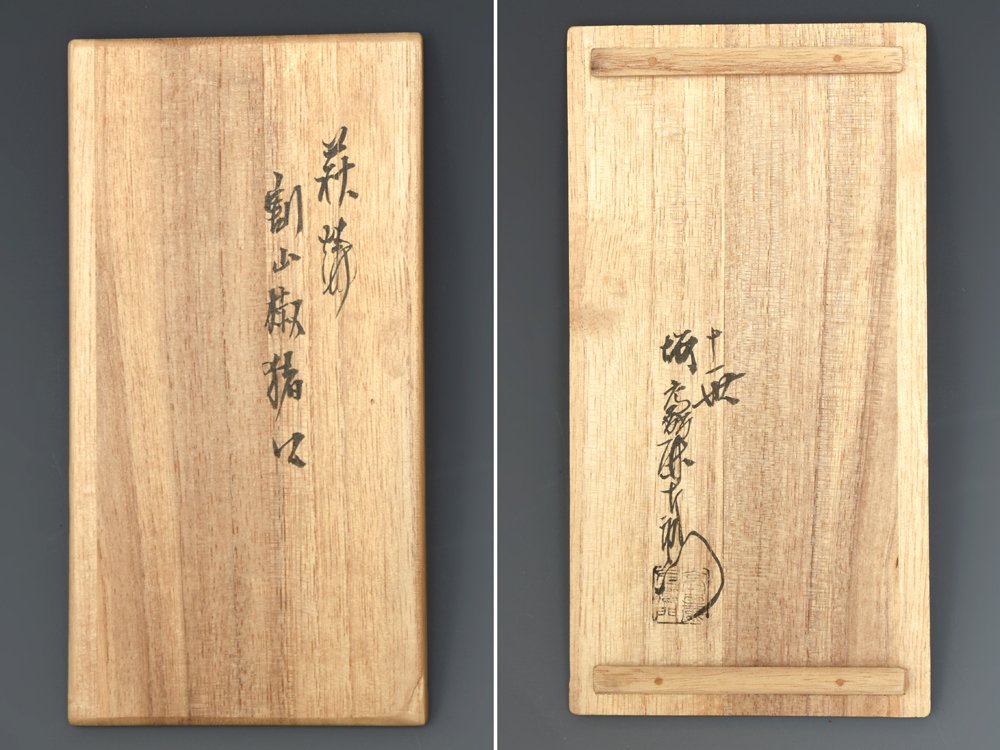 萩焼
割山椒猪口
十一世
坂高麗左衛門